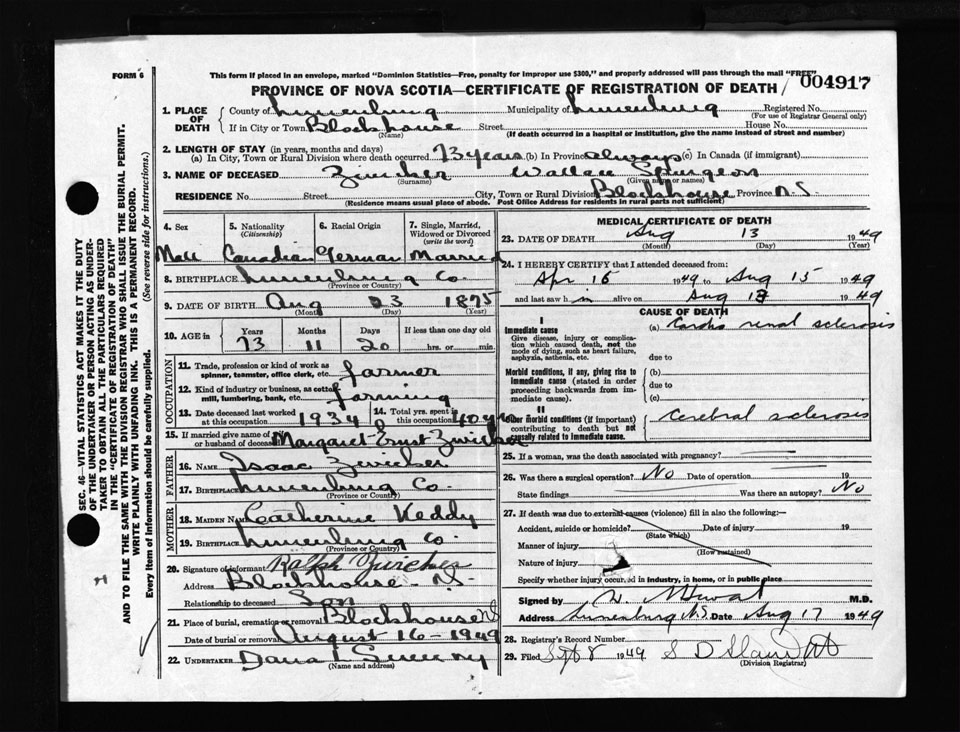 FORM 6
This form if placed in an envelope, marked "Dominion Statistics—Free, penalty for improper use $300," and properly addressed will pass through the mail "FREE"
PROVINCE OF NOVA SCOTIA—CERTIFICATE OF REGISTRATION OF DEATH / 004917
1. PLACE OF DEATH
County of Lunenburg Municipality of Lunenburg Registered No.
(For use of Registrar General only)
If in City or Town Blockhouse Street House No.
(Name) (If death occurred in a hospital or institution, give the name instead of street and number)
2. LENGTH OF STAY (in years, months and days)
(a) In City, Town or Rural Division where death occurred 73 years (b) In Province always (c) In Canada (if immigrant)
3. NAME OF DECEASED Zwicker Wallace Spurgeon
(Surname) (Given name or names)
RESIDENCE No. Street City, Town or Rural Division Blockhouse Province N.S.
(Residence means usual place of abode. Post Office Address for residents in rural parts not sufficient)
4. Sex 5. Nationality (Citizenship) 6. Racial Origin 7. Single, Married, Widowed or Divorced (write the word)
Male Canadian German Married
8. BIRTHPLACE Lunenburg Co.
(Province or Country)
9. DATE OF BIRTH Aug 23 1875
(Month) (Day) (Year)
10. AGE in Years Months Days If less than one day old
73 11 20 hrs. or min.
OCCUPATION
11. Trade, profession or kind of work as spinner, teamster, office clerk, etc. farmer
12. Kind of industry or business, as cotton mill, lumbering, bank, etc. farming
13. Date deceased last worked at this occupation 1934 14. Total yrs. spent in this occupation 40 yrs
15. If married give name of wife or husband of deceased Margaret Ernst Zwicker
FATHER
16. NAME Isaac Zwicker
17. BIRTHPLACE Lunenburg Co.
(Province or Country)
MOTHER
18. MAIDEN NAME Catherine Keddy
19. BIRTHPLACE Lunenburg Co.
(Province or Country)
20. Signature of informant Ralph Zwicker
Address Blockhouse N.S.
Relationship to deceased Son
21. Place of burial, cremation or removal Blockhouse N.S.
Date of burial or removal August 16-1949
22. UNDERTAKER Dana L Sweeny
(Name and address)
MEDICAL CERTIFICATE OF DEATH
23. DATE OF DEATH Aug 13 1949
(Month) (Day) (Year)
24. I HEREBY CERTIFY that I attended deceased from:
Apr 16 1949 to Aug 15 1949
and last saw h im alive on Aug 13 1949
CAUSE OF DEATH
I
Immediate cause (a) Cardio renal sclerosis
Give disease, injury or complication which caused death, not the mode of dying, such as heart failure, asphyxia, asthenia, etc.
due to
Morbid conditions, if any, giving rise to immediate cause (stated in order proceeding backwards from immediate cause).
(b)
due to
(c)
II
Other morbid conditions (if important) contributing to death but not causally related to immediate cause.
Cerebral sclerosis
25. If a woman, was the death associated with pregnancy?
26. Was there a surgical operation? No Date of operation 19
State findings Was there an autopsy? No
27. If death was due to external causes (violence) fill in also the following:—
Accident, suicide or homicide? Date of injury 19
(State which)
Manner of injury
(How sustained)
Nature of injury
Specify whether injury occurred in industry, in home, or in public place
Signed by M.D.
Address Lunenburg N.S. Date Aug 17 1949
28. Registrar's Record Number
29. Filed Sept 8 1949 S D
(Division Registrar)
SEC. 46—VITAL STATISTICS ACT MAKES IT THE DUTY
OF THE UNDERTAKER OR PERSON ACTING AS UNDERTAKER TO OBTAIN ALL THE PARTICULARS REQUIRED
IN THE "CERTIFICATE OF REGISTRATION OF DEATH"
AND TO FILE THE SAME WITH THE DIVISION REGISTRAR WHO SHALL ISSUE THE BURIAL PERMIT.
WRITE PLAINLY WITH UNFADING INK. THIS IS A PERMANENT RECORD.
Every item of Information should be carefully supplied. (See reverse side for instructions.)